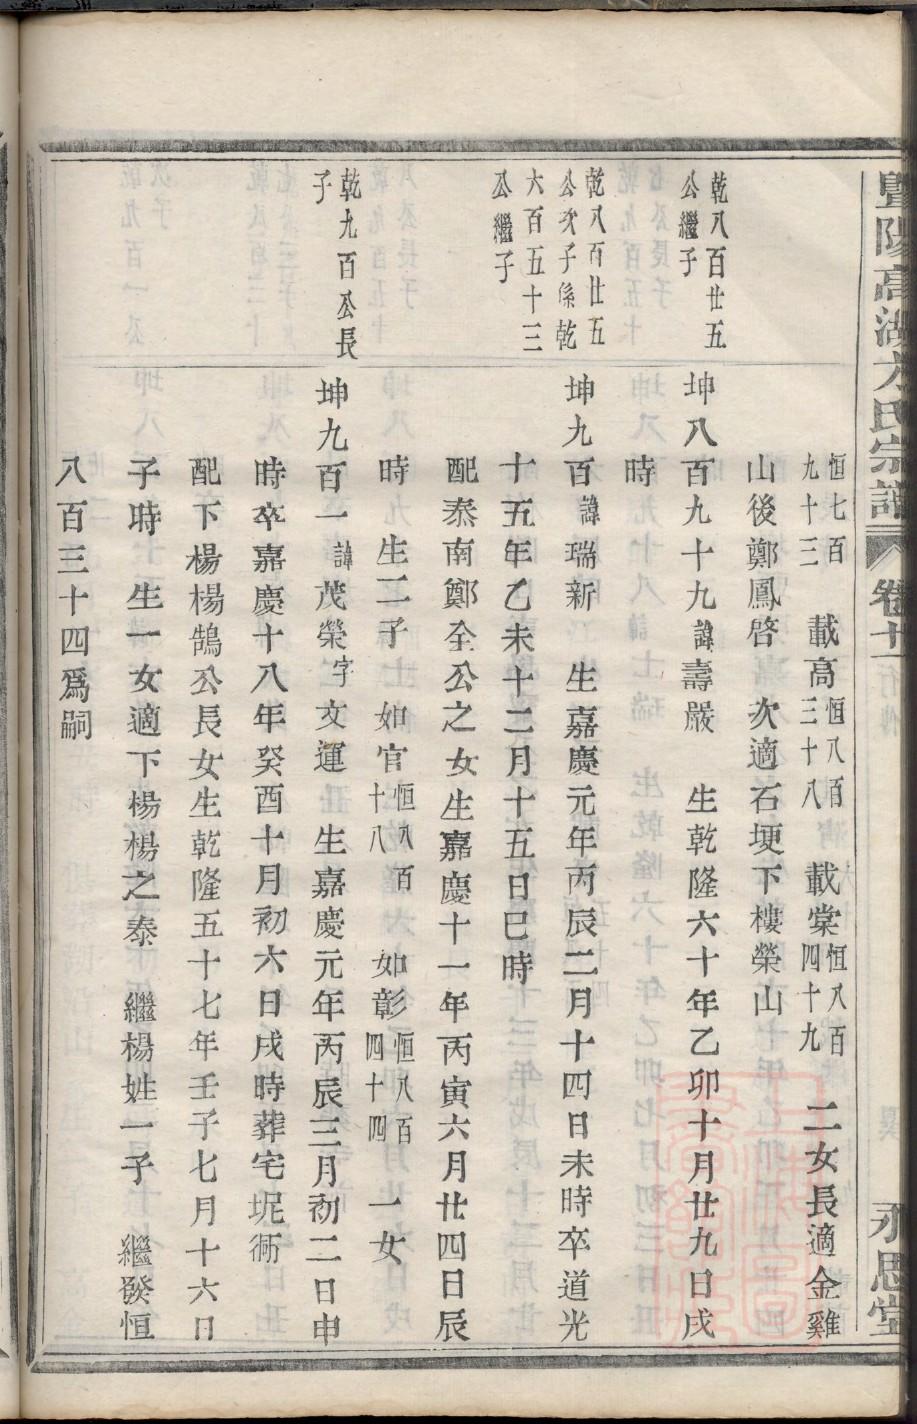 暨陽高湖方氏宗譜 卷十一 永思堂
恒七百九十三 載高恒八百三十八 載棠恒八百四十九 二女長適金雞
山後鄭鳳啓 次適石埂下樓榮山
乾八百廿五
公繼子
坤八百九十九諱壽嚴 生乾隆六十年乙卯十月廿九日戌
時
乾八百廿五
公次子係乾
六百五十三
公繼子
坤九百諱瑞新 生嘉慶元年丙辰二月十四日未時卒道光
十五年乙未十二月十五日巳時
配泰南鄭全公之女生嘉慶十一年丙寅六月廿四日辰
時 生二子 如官恒八百十八 如彰恒八百四十四 一女
乾九百公長
子
坤九百一諱茂榮字文運 生嘉慶元年丙辰三月初二日申
時卒嘉慶十八年癸酉十月初六日戌時葬宅坭衕
配下楊楊鵠公長女生乾隆五十七年壬子七月十六日
子時 生一女適下楊楊之泰 繼楊姓一子 繼發恒
八百三十四爲嗣